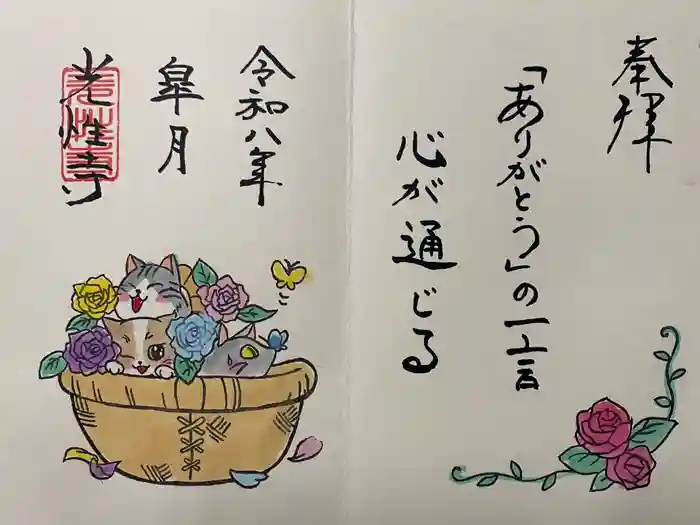 奉拝
「ありがとう」の一言
心が通じる
令和八年
皐月
光性寺